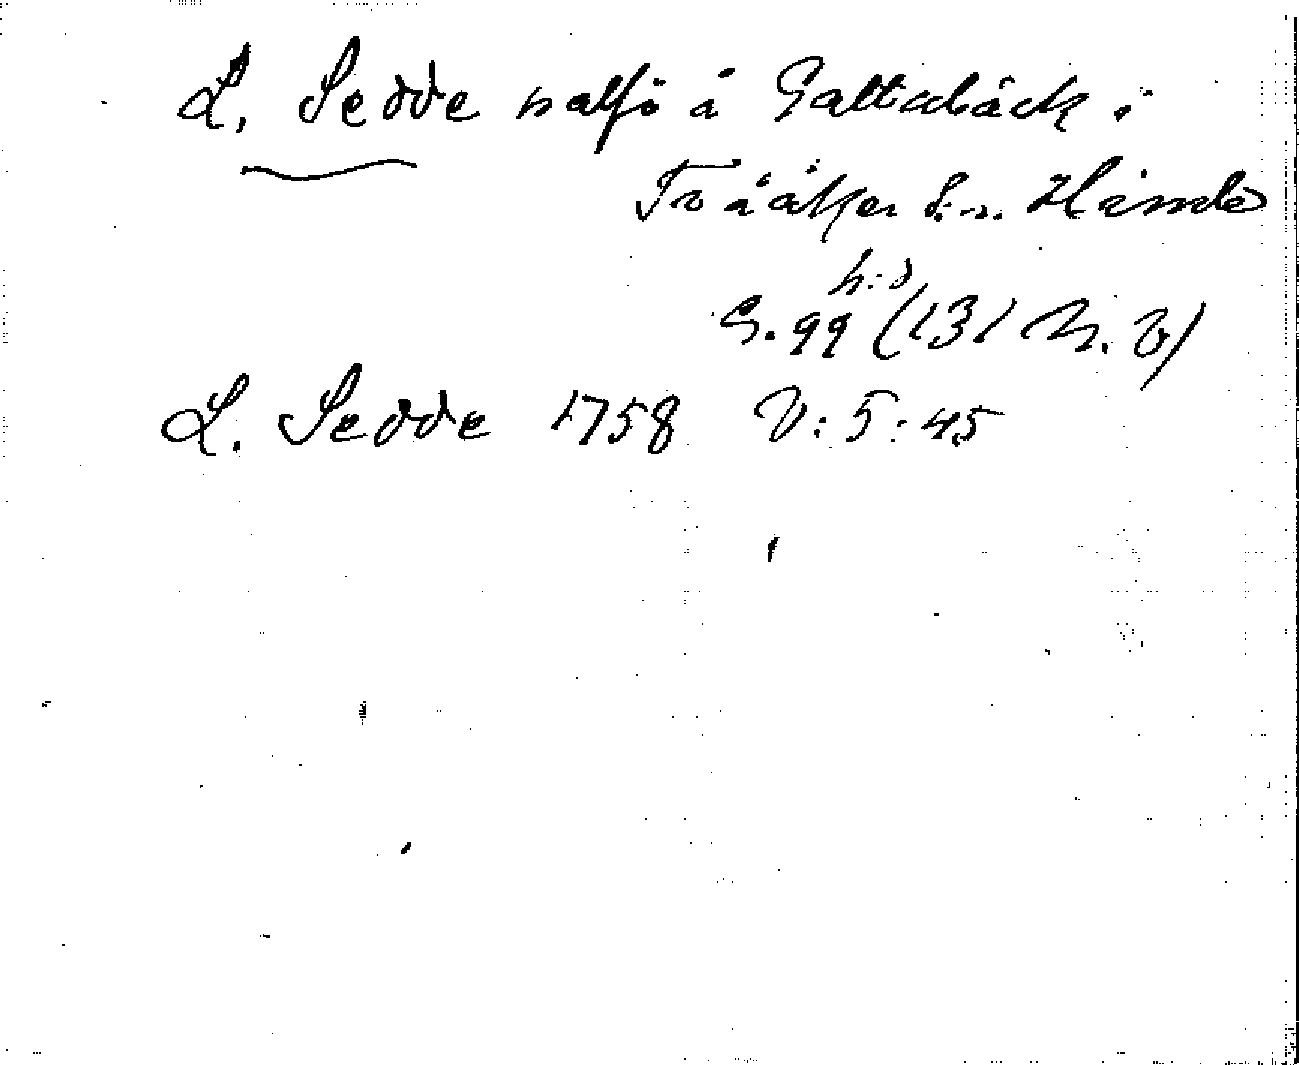 L. Sedde nalfö å Galtabäck i
Tvååker s:n. Himle
h:d
G. 99 (131 N. B)
L. Sedde 1758 V: 5: 45